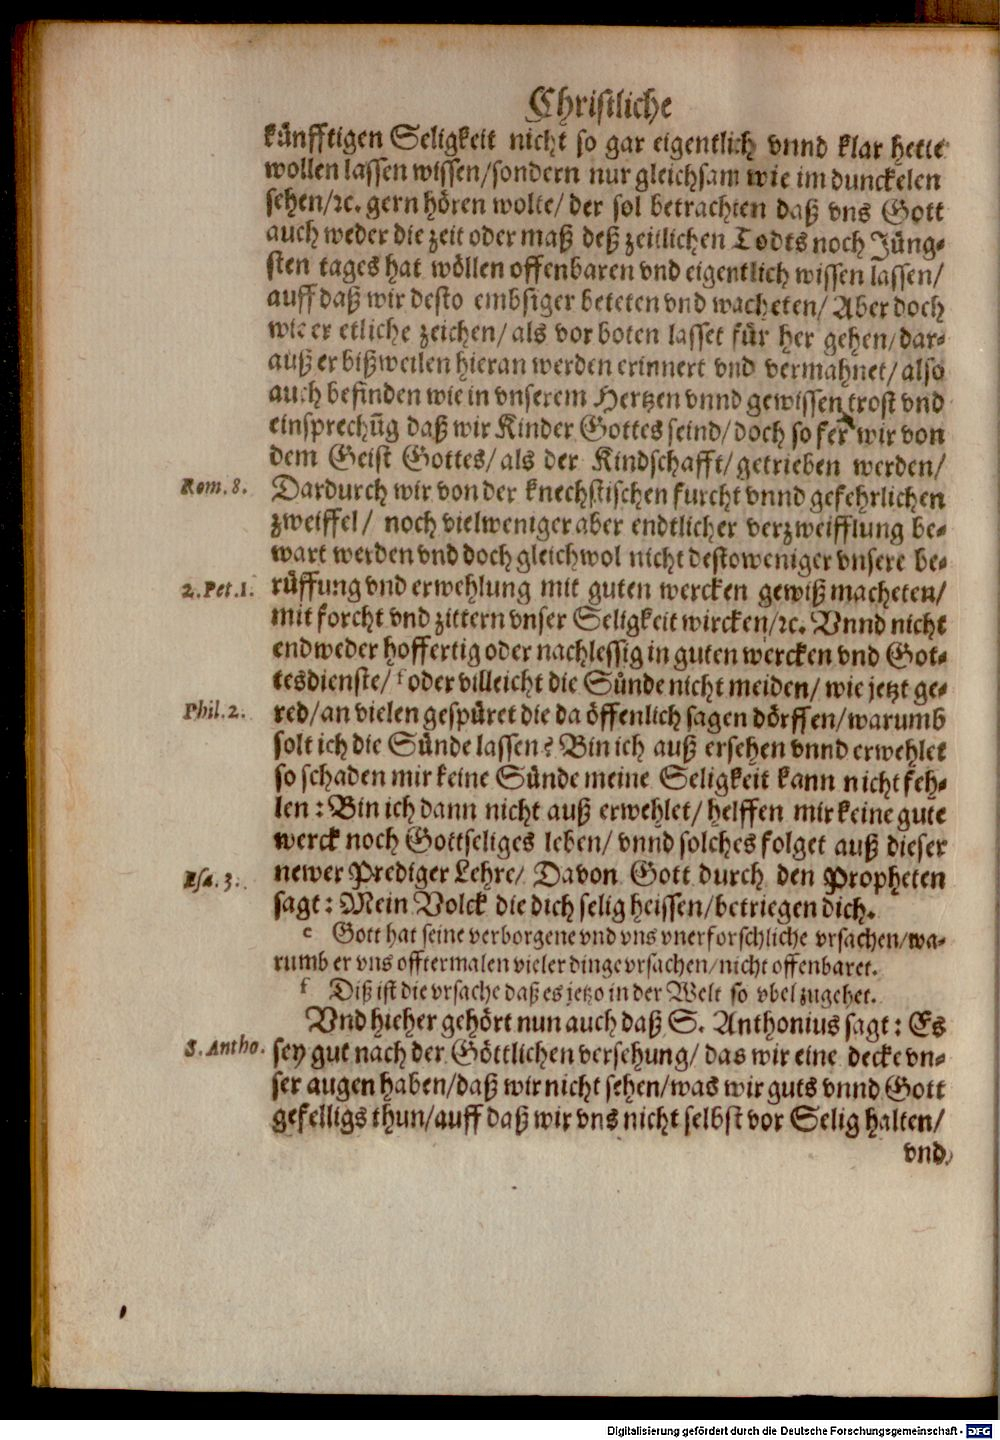 Christliche
künfftigen Seligkeit nicht so gar eigentlich vnnd klar hette
wollen lassen wissen/sondern nur gleichsam wie im dunckelen
sehen/ꝛc. gern hören wolte/ der sol betrachten daß vns Gott
auch weder die zeit oder maß deß zeitlichen Todts noch Jüng-
sten tages hat wöllen offenbaren vnd eigentlich wissen lassen/
auff daß wir desto embsiger beteten vnd wacheten/ Aber doch
wie er etliche zeichen/ als vorboten lasset für her gehen/ dar-
auß er bißweilen hieran werden erinnert vnd vermahnet/ also
auch befinden wie in vnserem Hertzen vnnd gewissen trost vnd
einsprechũg daß wir Kinder Gottes seind/ doch so fer wir von
dem Geist Gottes/ als der Kindschafft/ getrieben werden/
Rom. 8. Dardurch wir von der knechstischen furcht vnnd gefehrlichen
zweiffel/ noch vielweniger aber endtlicher verzweifflung be-
wart werden vnd doch gleichwol nicht destoweniger vnsere be-
2. Pet. 1. rüffung vnd erwehlung mit guten wercken gewiß macheten/
mit forcht vnd zittern vnser Seligkeit wircken/ꝛc. Vnnd nicht
endweder hoffertig oder nachlessig in guten wercken vnd Got-
tesdienste/ f oder villeicht die Sünde nicht meiden/ wie jetzt ge-
Phil. 2. red/ an vielen gespüret die da öffenlich sagen dörffen/ warumb
solt ich die Sünde lassen? Bin ich auß ersehen vnnd erwehlet
so schaden mir keine Sünde meine Seligkeit kann nicht feh-
len: Bin ich dann nicht auß erwehlet/ helffen mir keine gute
werck noch Gottseliges leben/ vnnd solches folget auß dieser
Esa. 3. newer Prediger Lehre/ Davon Gott durch den Propheten
sagt: Mein Volck die dich selig heissen/ betriegen dich.
e Gott hat seine verborgene vnd vns vnerforschliche vrsachen/ wa-
rumb er vns offtermalen vieler dinge vrsachen/ nicht offenbaret.
f Diß ist die vrsache daß es jetzo in der Welt so vbel zugehet.
Vnd hieher gehört nun auch daß S. Anthonius sagt: Es
S. Antho. sey gut nach der Göttlichen versehung/ das wir eine decke vn-
ser augen haben/ daß wir nicht sehen/ was wir guts vnnd Gott
gefelligs thun/ auff daß wir vns nicht selbst vor Selig halten/
vnd
Digitalisierung gefördert durch die Deutsche Forschungsgemeinschaft - DFG